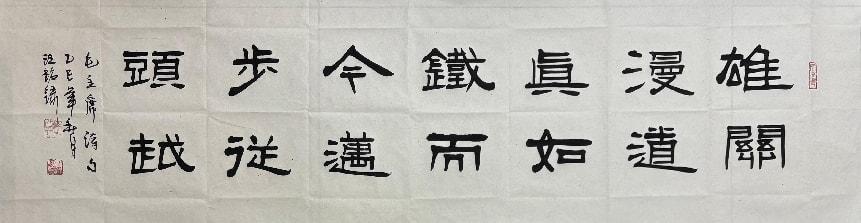 雄關
漫道
真如
鐵而
今邁
步從
頭越
毛主席詩句
乙巳年秋月
汪銘鏽